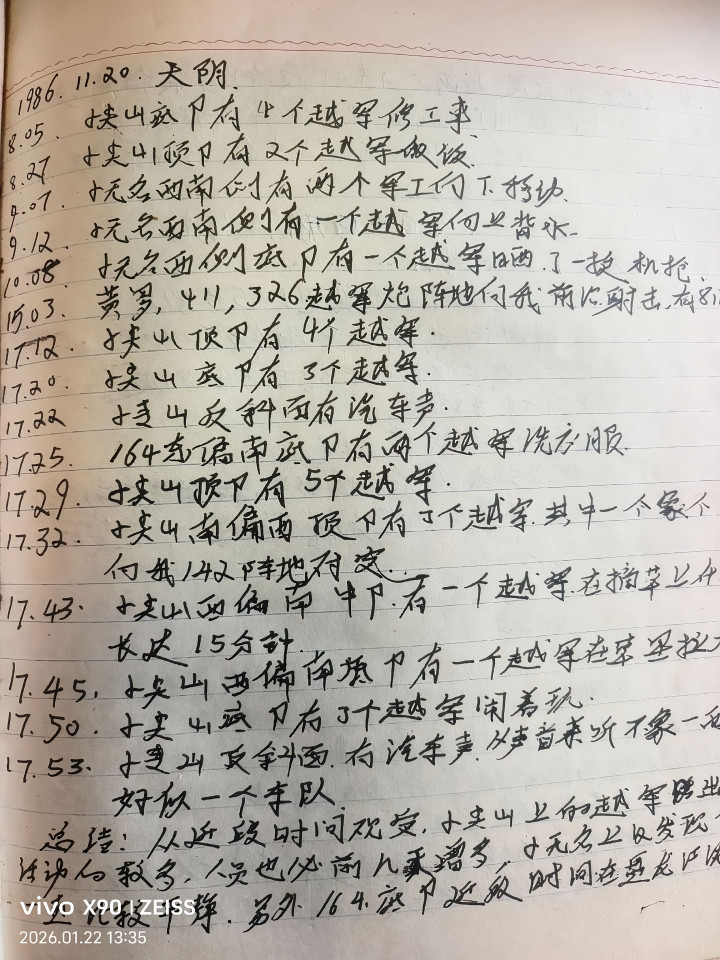 1986.11.20. 天阴.
8.05 小尖山底下有4个越军修工事
8.27 小尖山顶下有2个越军做饭.
9.07. 小无名西南侧有两个军工向下移动.
9.12. 小无名西南侧有一个越军向上背水.
10.08 小无名西侧底下有一个越军晒了一挺机枪.
15.03. 黄罗, 411, 326越军炮阵地向我前沿射击,
17.12. 小尖山顶下有4个越军.
17.20. 小尖山底下有3个越军.
17.22 小尖山反斜面有汽车声.
17.25. 164高偏南底下有两个越军洗衣服.
17.29. 小尖山顶下有5个越军.
17.32. 小尖山南偏西顶下有3个越军.其中一个拿个
向我142阵地观察..
17.43. 小尖山西偏南中下.有一个越军.在摘草上
长达15分针.
17.45, 小尖山西偏南坡下有一个越军在
17.50. 小尖山底下有3个越军闲着玩.
17.53. 小尖山反斜面.有汽车声.从声音来听不象一
好似一个车队
总结: 从近段时间观察, 小尖山上的越军
活动的较多, 人员也比前几天增多, 小无名上没发现
上比较平静. 另外164.底下近段时间在
vivo X90 | ZEISS
2026.01.22 13:35